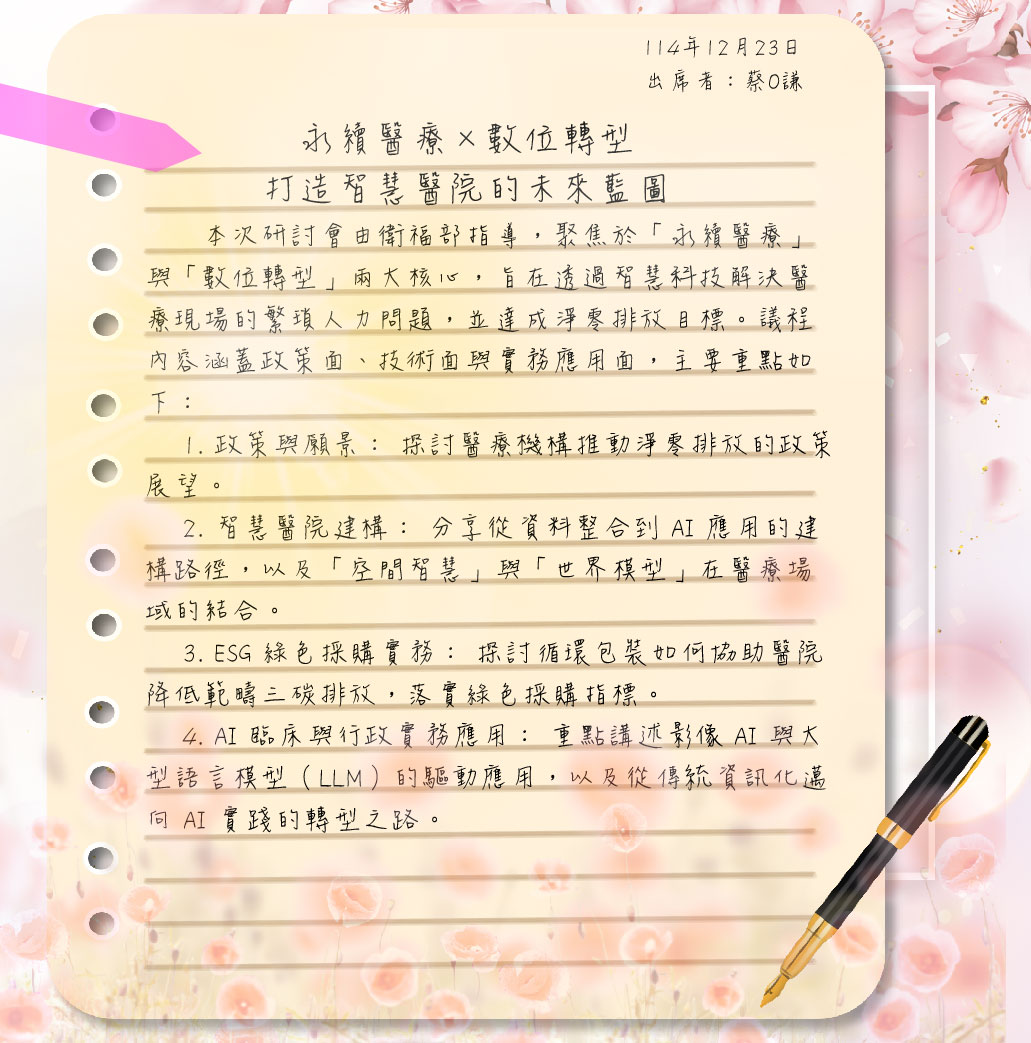 114年12月23日
出席者：蔡O謙
永續醫療×數位轉型
打造智慧醫院的未來藍圖
本次研討會由衛福部指導，聚焦於「永續醫療」
與「數位轉型」兩大核心，旨在透過智慧科技解決醫
療現場的繁瑣人力問題，並達成淨零排放目標。議程
內容涵蓋政策面、技術面與實務應用面，主要重點如
下：
1. 政策與願景： 探討醫療機構推動淨零排放的政策
展望。
2. 智慧醫院建構： 分享從資料整合到 AI 應用的建
構路徑，以及「空間智慧」與「世界模型」在醫療場
域的結合。
3. ESG 綠色採購實務： 探討循環包裝如何協助醫院
降低範疇三碳排放，落實綠色採購指標。
4. AI 臨床與行政實務應用： 重點講述影像 AI 與大
型語言模型（LLM）的驅動應用，以及從傳統資訊化邁
向 AI 實踐的轉型之路。